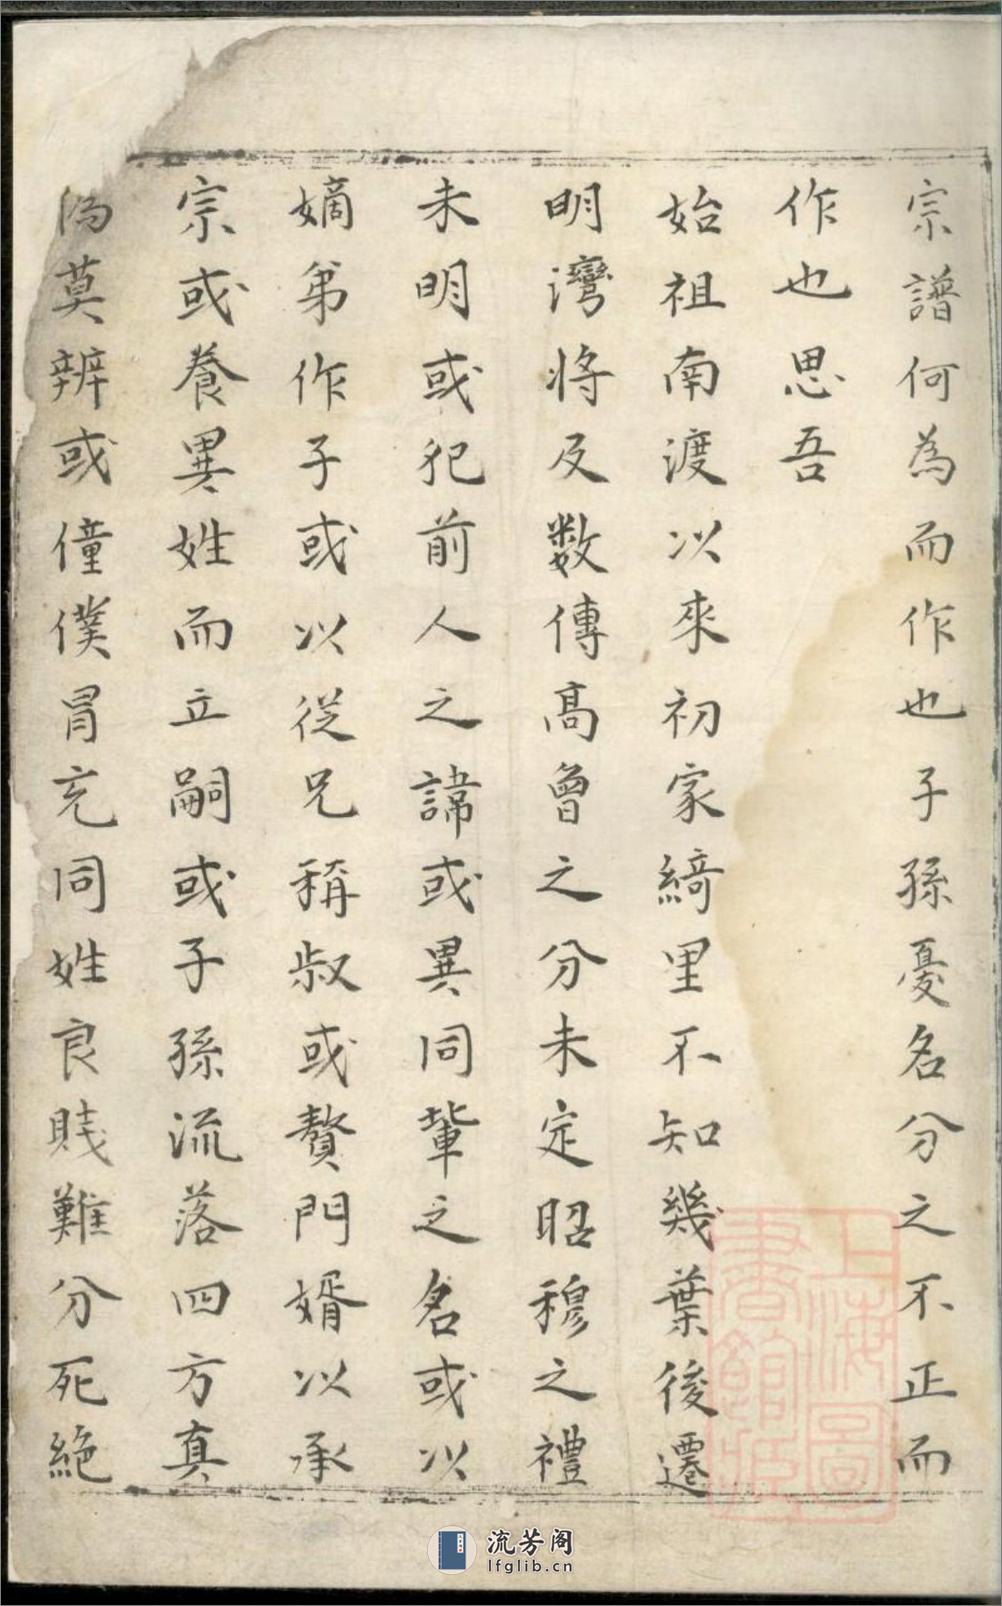 宗譜何為而作也子孫憂名分之不正而
作也思吾
始祖南渡以來初家綺里不知幾葉後遷
明灣將及数傳髙曾之分未定昭穆之禮
未明或犯前人之諱或異同軰之名或以
嫡弟作子或以從兄稱叔或贅門婿以承
宗或養異姓而立嗣或子孫流落四方真
偽莫辨或僮僕冐充同姓良賎難分死絶
上海圖
書館藏
流芳阁
lfglib.cn